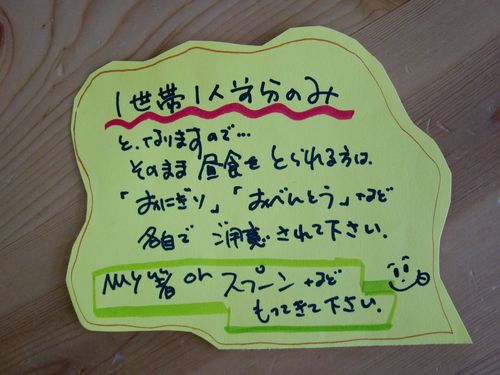 1世帯1人分のみ
となりますので…
そのまま昼食をとられる方は、
「おにぎり」「おべんとう」など
各自でご用意されて下さい。
my箸 or スプーンなど
もってきて下さい。